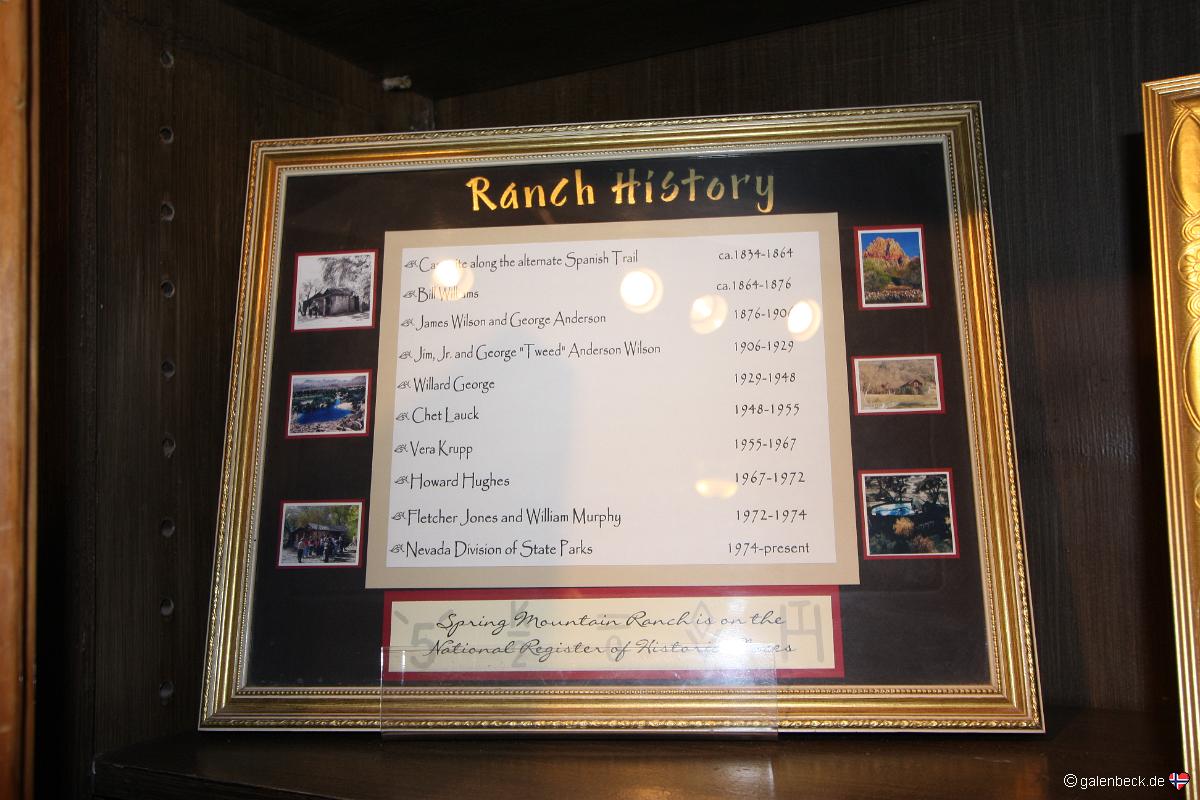 Ranch History
Campsite along the alternate Spanish Trail ca.1834-1864
Bill Williams ca.1864-1876
James Wilson and George Anderson 1876-1906
Jim, Jr. and George "Tweed" Anderson Wilson 1906-1929
Willard George 1929-1948
Chet Lauck 1948-1955
Vera Krupp 1955-1967
Howard Hughes 1967-1972
Fletcher Jones and William Murphy 1972-1974
Nevada Division of State Parks 1974-present
Spring Mountain Ranch is on the
National Register of Historic
© galenbeck.de